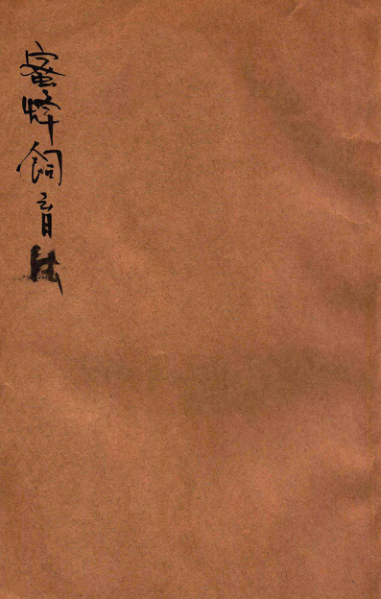 蜜蜂飼育法